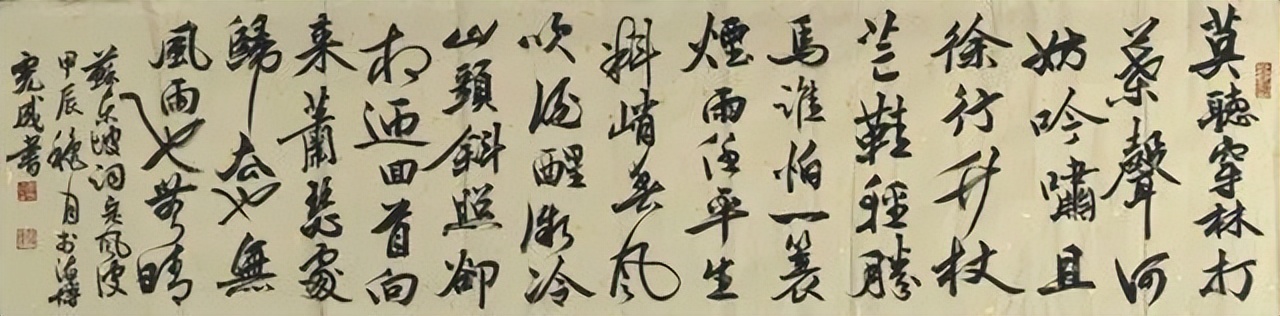 莫聽穿林打
葉聲何
妨吟嘯且
徐行竹杖
芒鞋輕勝
馬誰怕一蓑
煙雨任平生
料峭春風
吹酒醒微冷
山頭斜照卻
相迎回首向
來蕭瑟處
歸去也無
風雨也無晴
蘇東坡詞定風波
甲辰穐月於淄博
成書